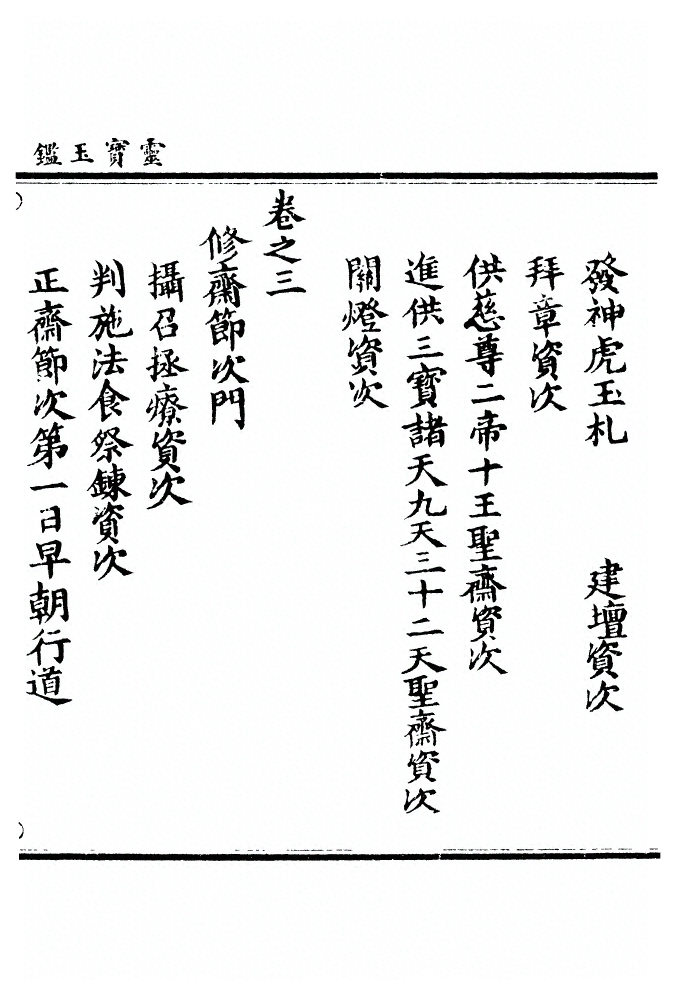 靈寶玉鑑
發神虎玉札　建壇資次
拜章資次
供慈尊二帝十王聖齋資次
進供三寶諸天九天三十二天聖齋資次
關燈資次
卷之三
修齋節次門
攝召拯療資次
判施法食祭鍊資次
正齋節次第一日早朝行道